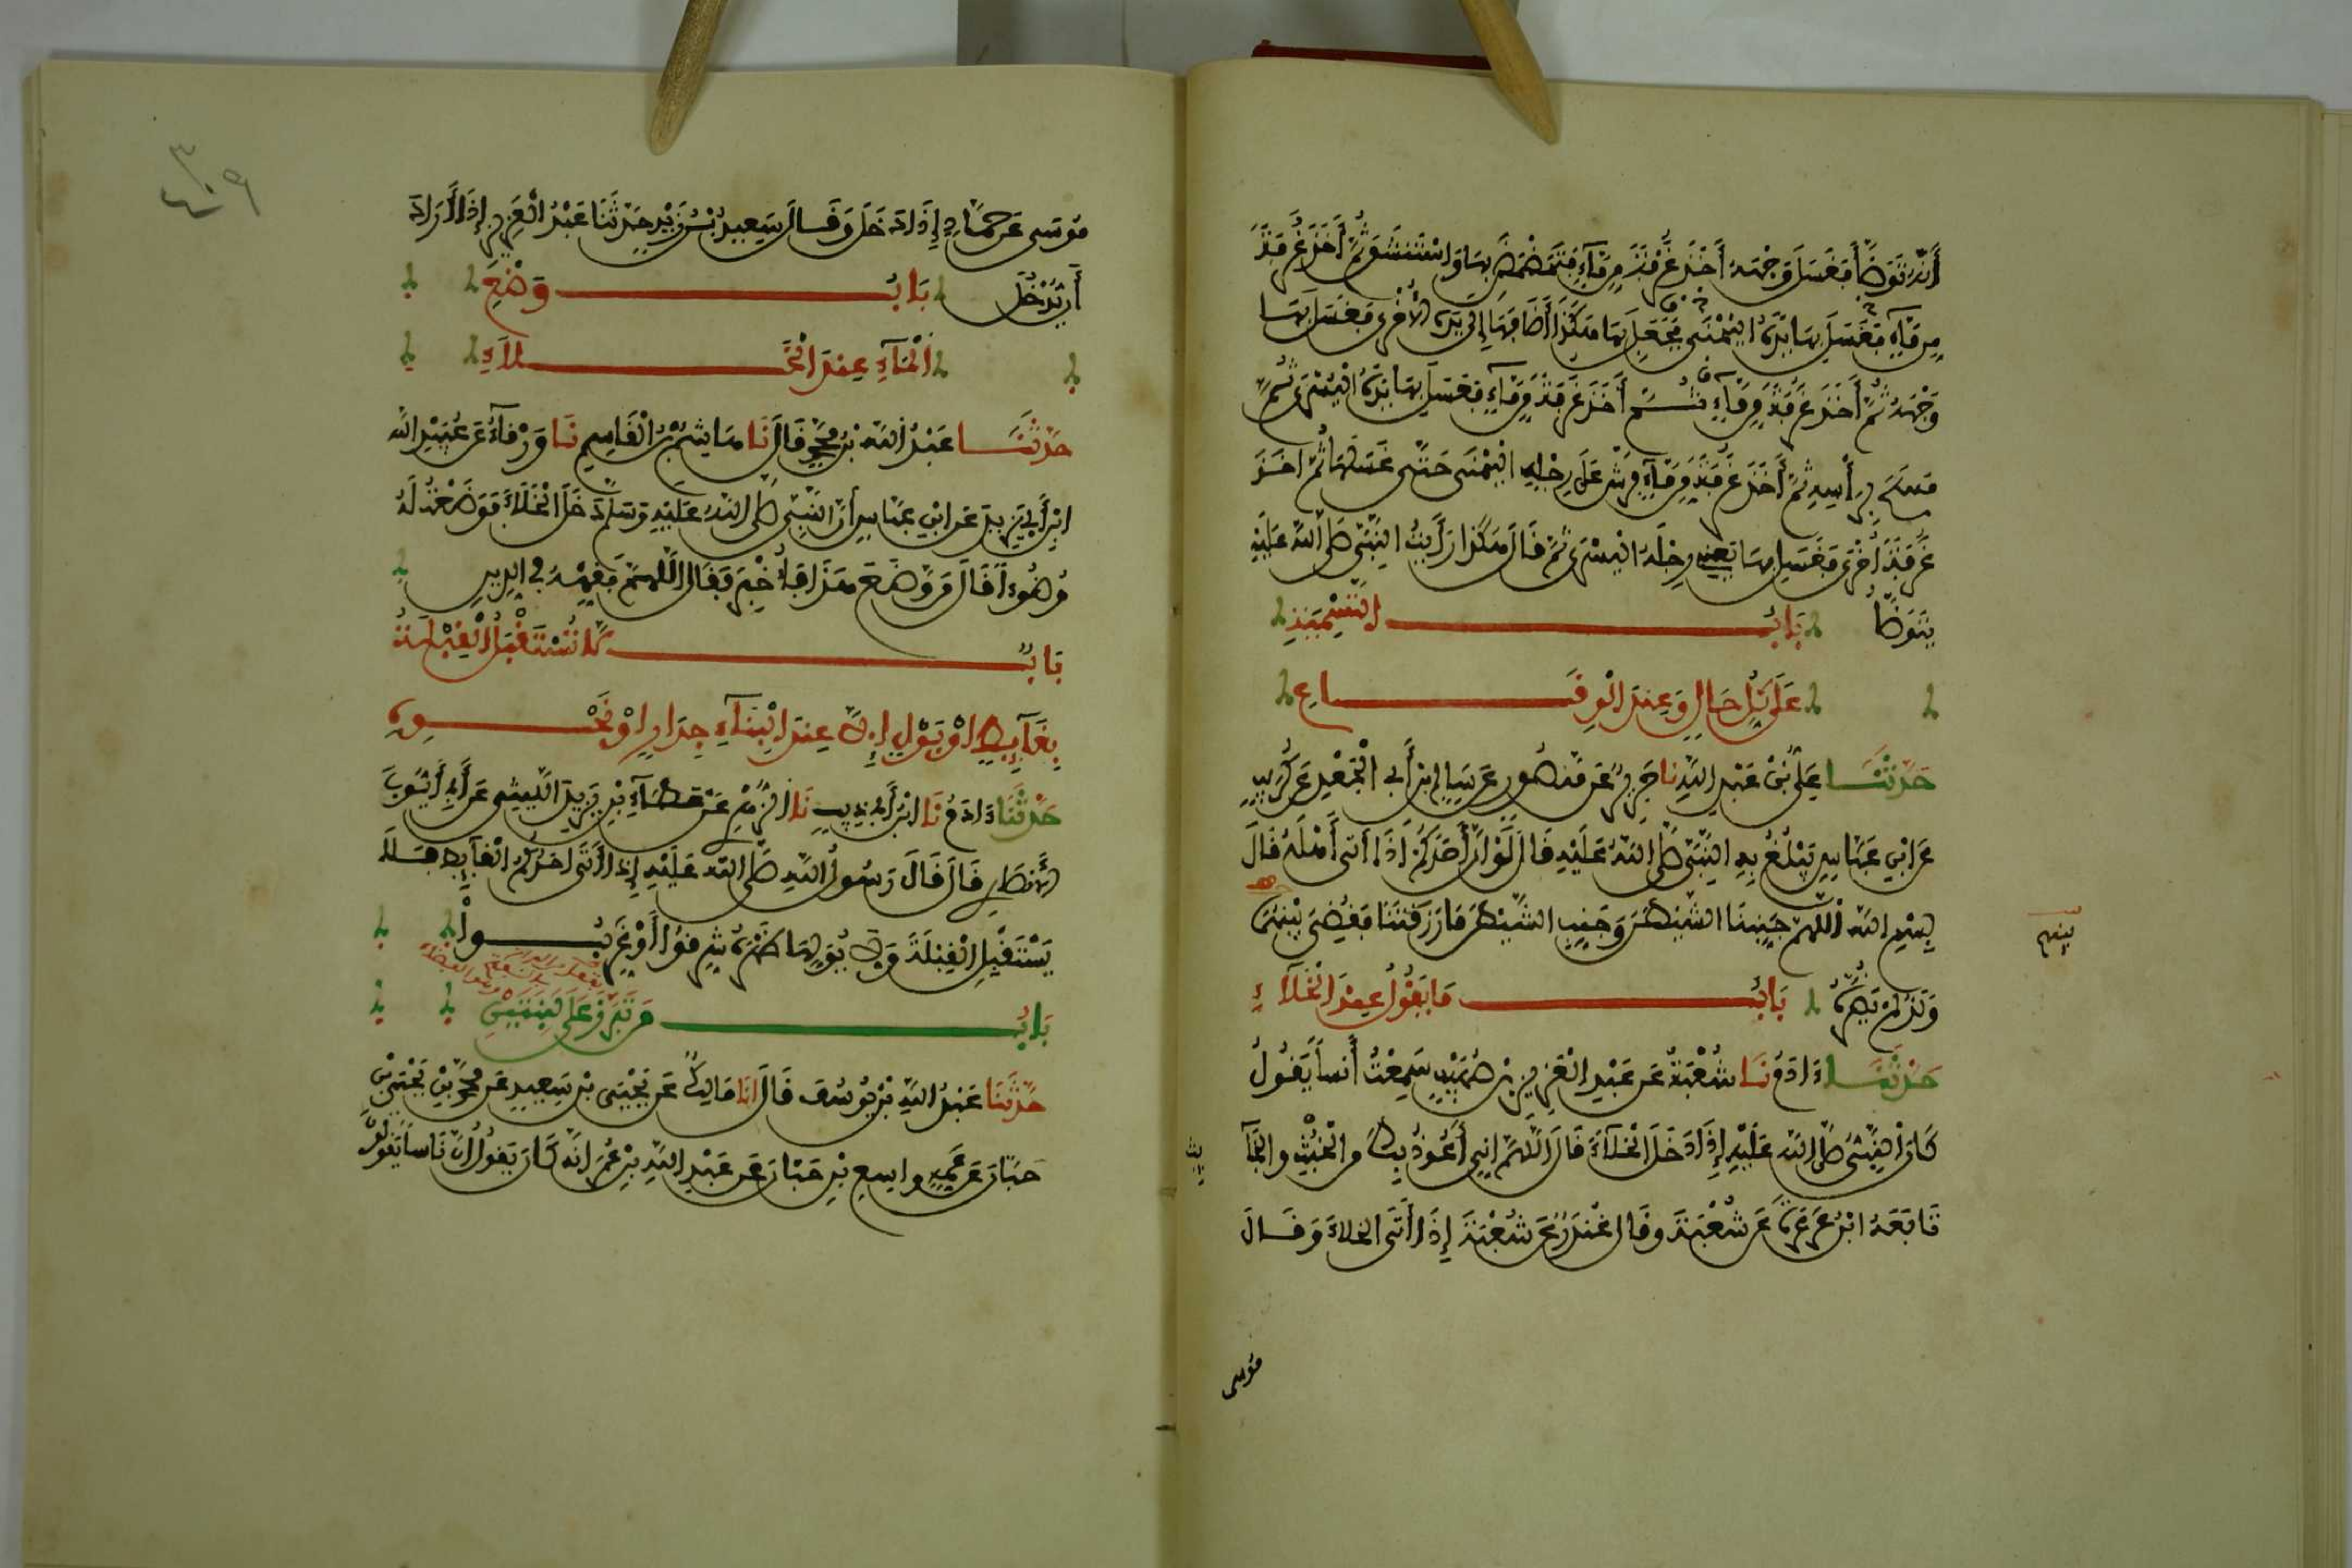 أنه توضأ فغسل وجهه أخذ غرفة من ماء فتمضمض بها واستنشق ثم أخذ غرفة
من ماء فغسل بها يده اليمنى فجعل بها هكذا أضافها إلى يده الأخرى فغسل بها
وجهه ثم أخذ غرفة من ماء ثم أخذ غرفة من ماء فغسل بها يده اليسرى ثم
مسح برأسه ثم أخذ غرفة من ماء فرش على رجله اليمنى حتى غسلها ثم أخذ
غرفة أخرى فغسل بها يعني رجله اليسرى ثم قال هكذا رأيت النبي صلى الله عليه
يتوضأ باب التسمية
على كل حال وعند الوقاع
حدثنا علي بن عبد الله نا جرير عن منصور عن سالم بن أبي الجعد عن كريب
عن ابن عباس يبلغ به النبي صلى الله عليه قال لو أن أحدكم إذا أتى أهله قال
بسم الله اللهم جنبنا الشيطن وجنب الشيطن ما رزقتنا فقضي بينهما
بينهم
ولد لم يضره باب ما يقول عند الخلاء
حدثنا ءادم نا شعبة عن عبد العزيز بن صهيب سمعت أنسا يقول
كان النبي صلى الله عليه إذا دخل الخلاء قال اللهم إني أعوذ بك من الخبث والخبا
يث
تابعه ابن عرعرة عن شعبة وقال غندر عن شعبة إذا أتى الخلاء وقال
موسى
موسى عن حماد إذا دخل وقال سعيد بن زيد حدثنا عبد العزيز إذا أراد
أن يدخل باب وضع
الماء عند الخلاء
حدثنا عبد الله بن محمد قال نا هاشم بن القاسم نا ورقاء عن عبيد الله
ابن أبي يزيد عن ابن عباس أن النبي صلى الله عليه وسلم دخل الخلاء فوضعت له
وضوءا قال من وضع هذا فأخبر فقال اللهم فقهه في الدين
باب لا تستقبل القبلة
بغائط أو بول إلا عند البناء جدار أو نحوه
حدثنا ءادم نا ابن أبي ذيب نا الزهري عن عطاء بن يزيد الليثي عن أبي أيوب
الأنصاري قال قال رسول الله صلى الله عليه إذا أتى أحدكم الغائط فلا
يستقبل القبلة ولا يولها ظهره شرقوا أو غربوا
باب من تبرز على لبنتين
حدثنا عبد الله بن يوسف قال انا مالك عن يحيى بن سعيد عن محمد بن يحيى بن
حبان عن عمه واسع بن حبان عن عبد الله بن عمر انه كان يقول ان ناسا يقولون